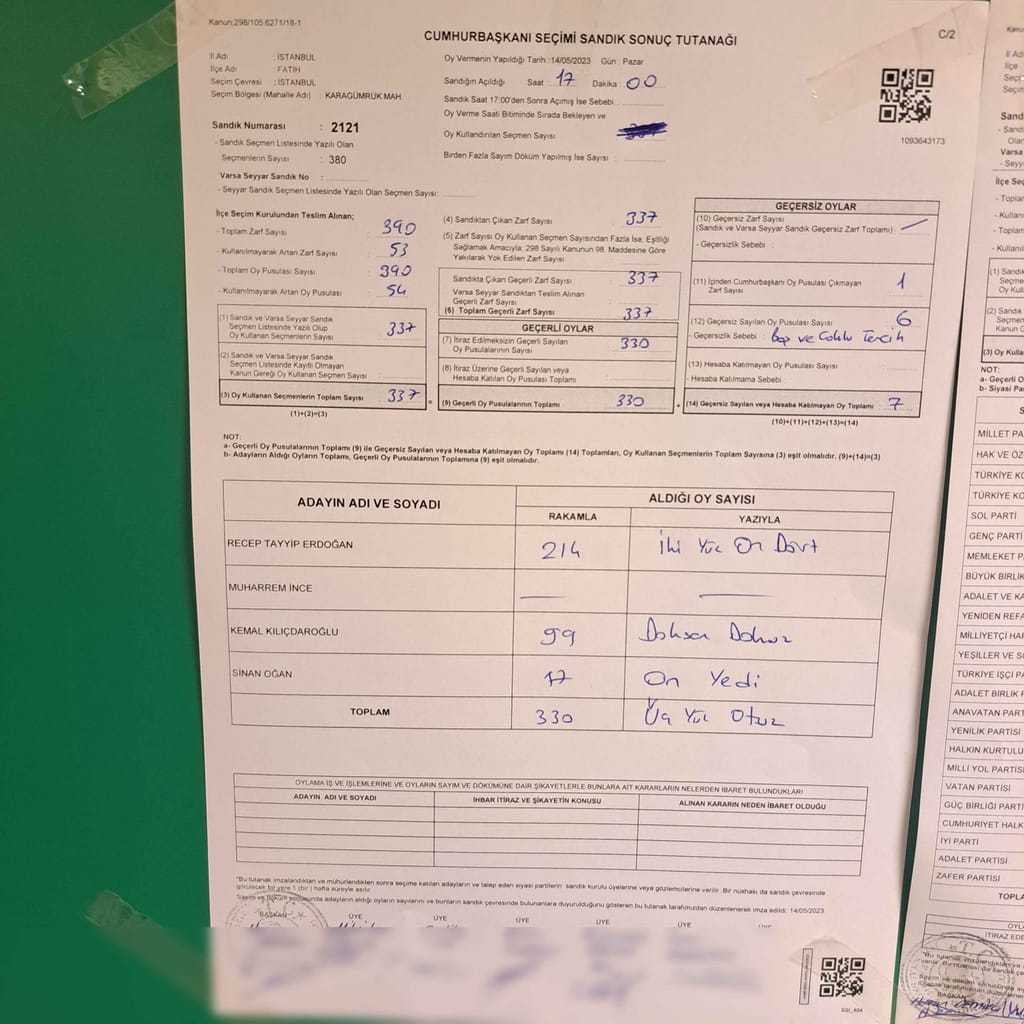 Kanun:298/105;6271/18-1
C/2
CUMHURBAŞKANI SEÇİMİ SANDIK SONUÇ TUTANAĞI
İl Adı : İSTANBUL
İlçe Adı : FATİH
Seçim Çevresi : İSTANBUL
Seçim Bölgesi (Mahalle Adı) : KARAGÜMRÜK MAH.
Sandık Numarası : 2121
- Sandık Seçmen Listesinde Yazılı Olan
Seçmenlerin Sayısı : 380
Varsa Seyyar Sandık No :
- Seyyar Sandık Seçmen Listesinde Yazılı Olan Seçmen Sayısı:
Oy Vermenin Yapıldığı Tarih :14/05/2023 Gün : Pazar
Sandığın Açıldığı Saat : 17 Dakika 00
Sandık Saat 17:00'den Sonra Açımış İse Sebebi :
Oy Verme Saati Bitiminde Sırada Bekleyen ve
Oy Kullandırılan Seçmen Sayısı
Birden Fazla Sayım Döküm Yapılmış İse Sayısı :
1093643173
İlçe Seçim Kurulundan Teslim Alınan;
- Toplam Zarf Sayısı : 390
- Kullanılmayarak Artan Zarf Sayısı : 53
- Toplam Oy Pusulası Sayısı : 390
- Kullanılmayarak Artan Oy Pusulası : 54
(1) Sandık ve Varsa Seyyar Sandık
Seçmen Listesinde Yazılı Olup
Oy Kullanan Seçmenlerin Sayısı : 337
(2) Sandık ve Varsa Seyyar Sandık
Seçmen Listesinde Kayıtlı Olmayan
Kanun Gereği Oy Kullanan Seçmen Sayısı :
(3) Oy Kullanan Seçmenlerin Toplam Sayısı : 337
(1)+(2)=(3)
(4) Sandıktan Çıkan Zarf Sayısı : 337
(5) Zarf Sayısı Oy Kullanan Seçmen Sayısından Fazla İse, Eşitliği
Sağlamak Amacıyla; 298 Sayılı Kanunun 98. Maddesine Göre
Yakılarak Yok Edilen Zarf Sayısı :
Sandıkta Çıkan Geçerli Zarf Sayısı : 337
Varsa Seyyar Sandıktan Teslim Alınan
Geçerli Zarf Sayısı :
(6) Toplam Geçerli Zarf Sayısı : 337
GEÇERLİ OYLAR
(7) İtiraz Edilmeksizin Geçerli Sayılan
Oy Pusulalarının Sayısı : 330
(8) İtiraz Üzerine Geçerli Sayılan veya
Hesaba Katılan Oy Pusulası Toplamı :
(9) Geçerli Oy Pusulalarının Toplamı : 330
GEÇERSİZ OYLAR
(10) Geçersiz Zarf Sayısı
(Sandık ve Varsa Seyyar Sandık Geçersiz Zarf Toplamı) : —
- Geçersizlik Sebebi :
(11) İçinden Cumhurbaşkanı Oy Pusulası Çıkmayan
Zarf Sayısı : 1
(12) Geçersiz Sayılan Oy Pusulası Sayısı : 6
- Geçersizlik Sebebi : Boş ve Çoklu Tercih
(13) Hesaba Katılmayan Oy Pusulası Sayısı :
- Hesaba Katılmama Sebebi :
(14) Geçersiz Sayılan veya Hesaba Katılmayan Oy Toplamı : 7
(10)+(11)+(12)+(13)=(14)
NOT:
a- Geçerli Oy Pusulalarının Toplamı (9) ile Geçersiz Sayılan veya Hesaba Katılmayan Oy Toplamı (14) Toplamları, Oy Kullanan Seçmenlerin Toplam Sayısına (3) eşit olmalıdır. (9)+(14)=(3)
b- Adayların Aldığı Oyların Toplamı, Geçerli Oy Pusulalarının Toplamına (9) eşit olmalıdır.
ADAYIN ADI VE SOYADI ALDIĞI OY SAYISI
RAKAMLA YAZIYLA
RECEP TAYYİP ERDOĞAN 214 İki Yüz On Dört
MUHARREM İNCE — —
KEMAL KILIÇDAROĞLU 99 Doksan Dokuz
SİNAN OĞAN 17 On Yedi
TOPLAM 330 Üç Yüz Otuz
OYLAMA İŞ VE İŞLEMLERİNE VE OYLARIN SAYIM VE DÖKÜMÜNE DAİR ŞİKAYETLERLE BUNLARA AİT KARARLARIN NELERDEN İBARET BULUNDUKLARI
ADAYIN ADI VE SOYADI İHBAR İTİRAZ VE ŞİKAYETİN KONUSU ALINAN KARARIN NEDEN İBARET OLDUĞU
"Bu tutanak imzalandıktan ve mühürlendikten sonra seçime katılan adayların ve talep eden siyasi partilerin sandık kurulu üyelerine veya gözlemcilerine verilir. Bir nüshası da sandık çevresinde
görülecek bir yere 1 (bir) hafta süreyle asılır.
Sayım ve döküm sonucunda adayların aldığı oyların sayılarını ve bunların sandık çevresinde bulunanlara duyurulduğunu gösteren bu tutanak tarafımızdan düzenlenerek imza edildi. 14/05/2023
BAŞKAN ÜYE ÜYE ÜYE ÜYE ÜYE ÜYE
SSI_404
NOT:
MİLLET PA
HAK VE ÖZ
TÜRKİYE KO
TÜRKİYE KO
SOL PARTİ
GENÇ PARTİ
MEMLEKET P
BÜYÜK BİRLİK
ADALET VE KA
YENİDEN REFA
MİLLİYETÇİ HAR
YEŞİLLER VE SO
TÜRKİYE İŞÇİ PA
ADALET BİRLİK P
ANAVATAN PART
YENİLİK PARTİSİ
HALKIN KURTULU
MİLLİ YOL PARTİSİ
VATAN PARTİSİ
GÜÇ BİRLİĞİ PARTİ
CUMHURİYET HALK
İYİ PARTİ
ADALET PARTİSİ
ZAFER PARTİSİ
TOPLA
BAŞKAN